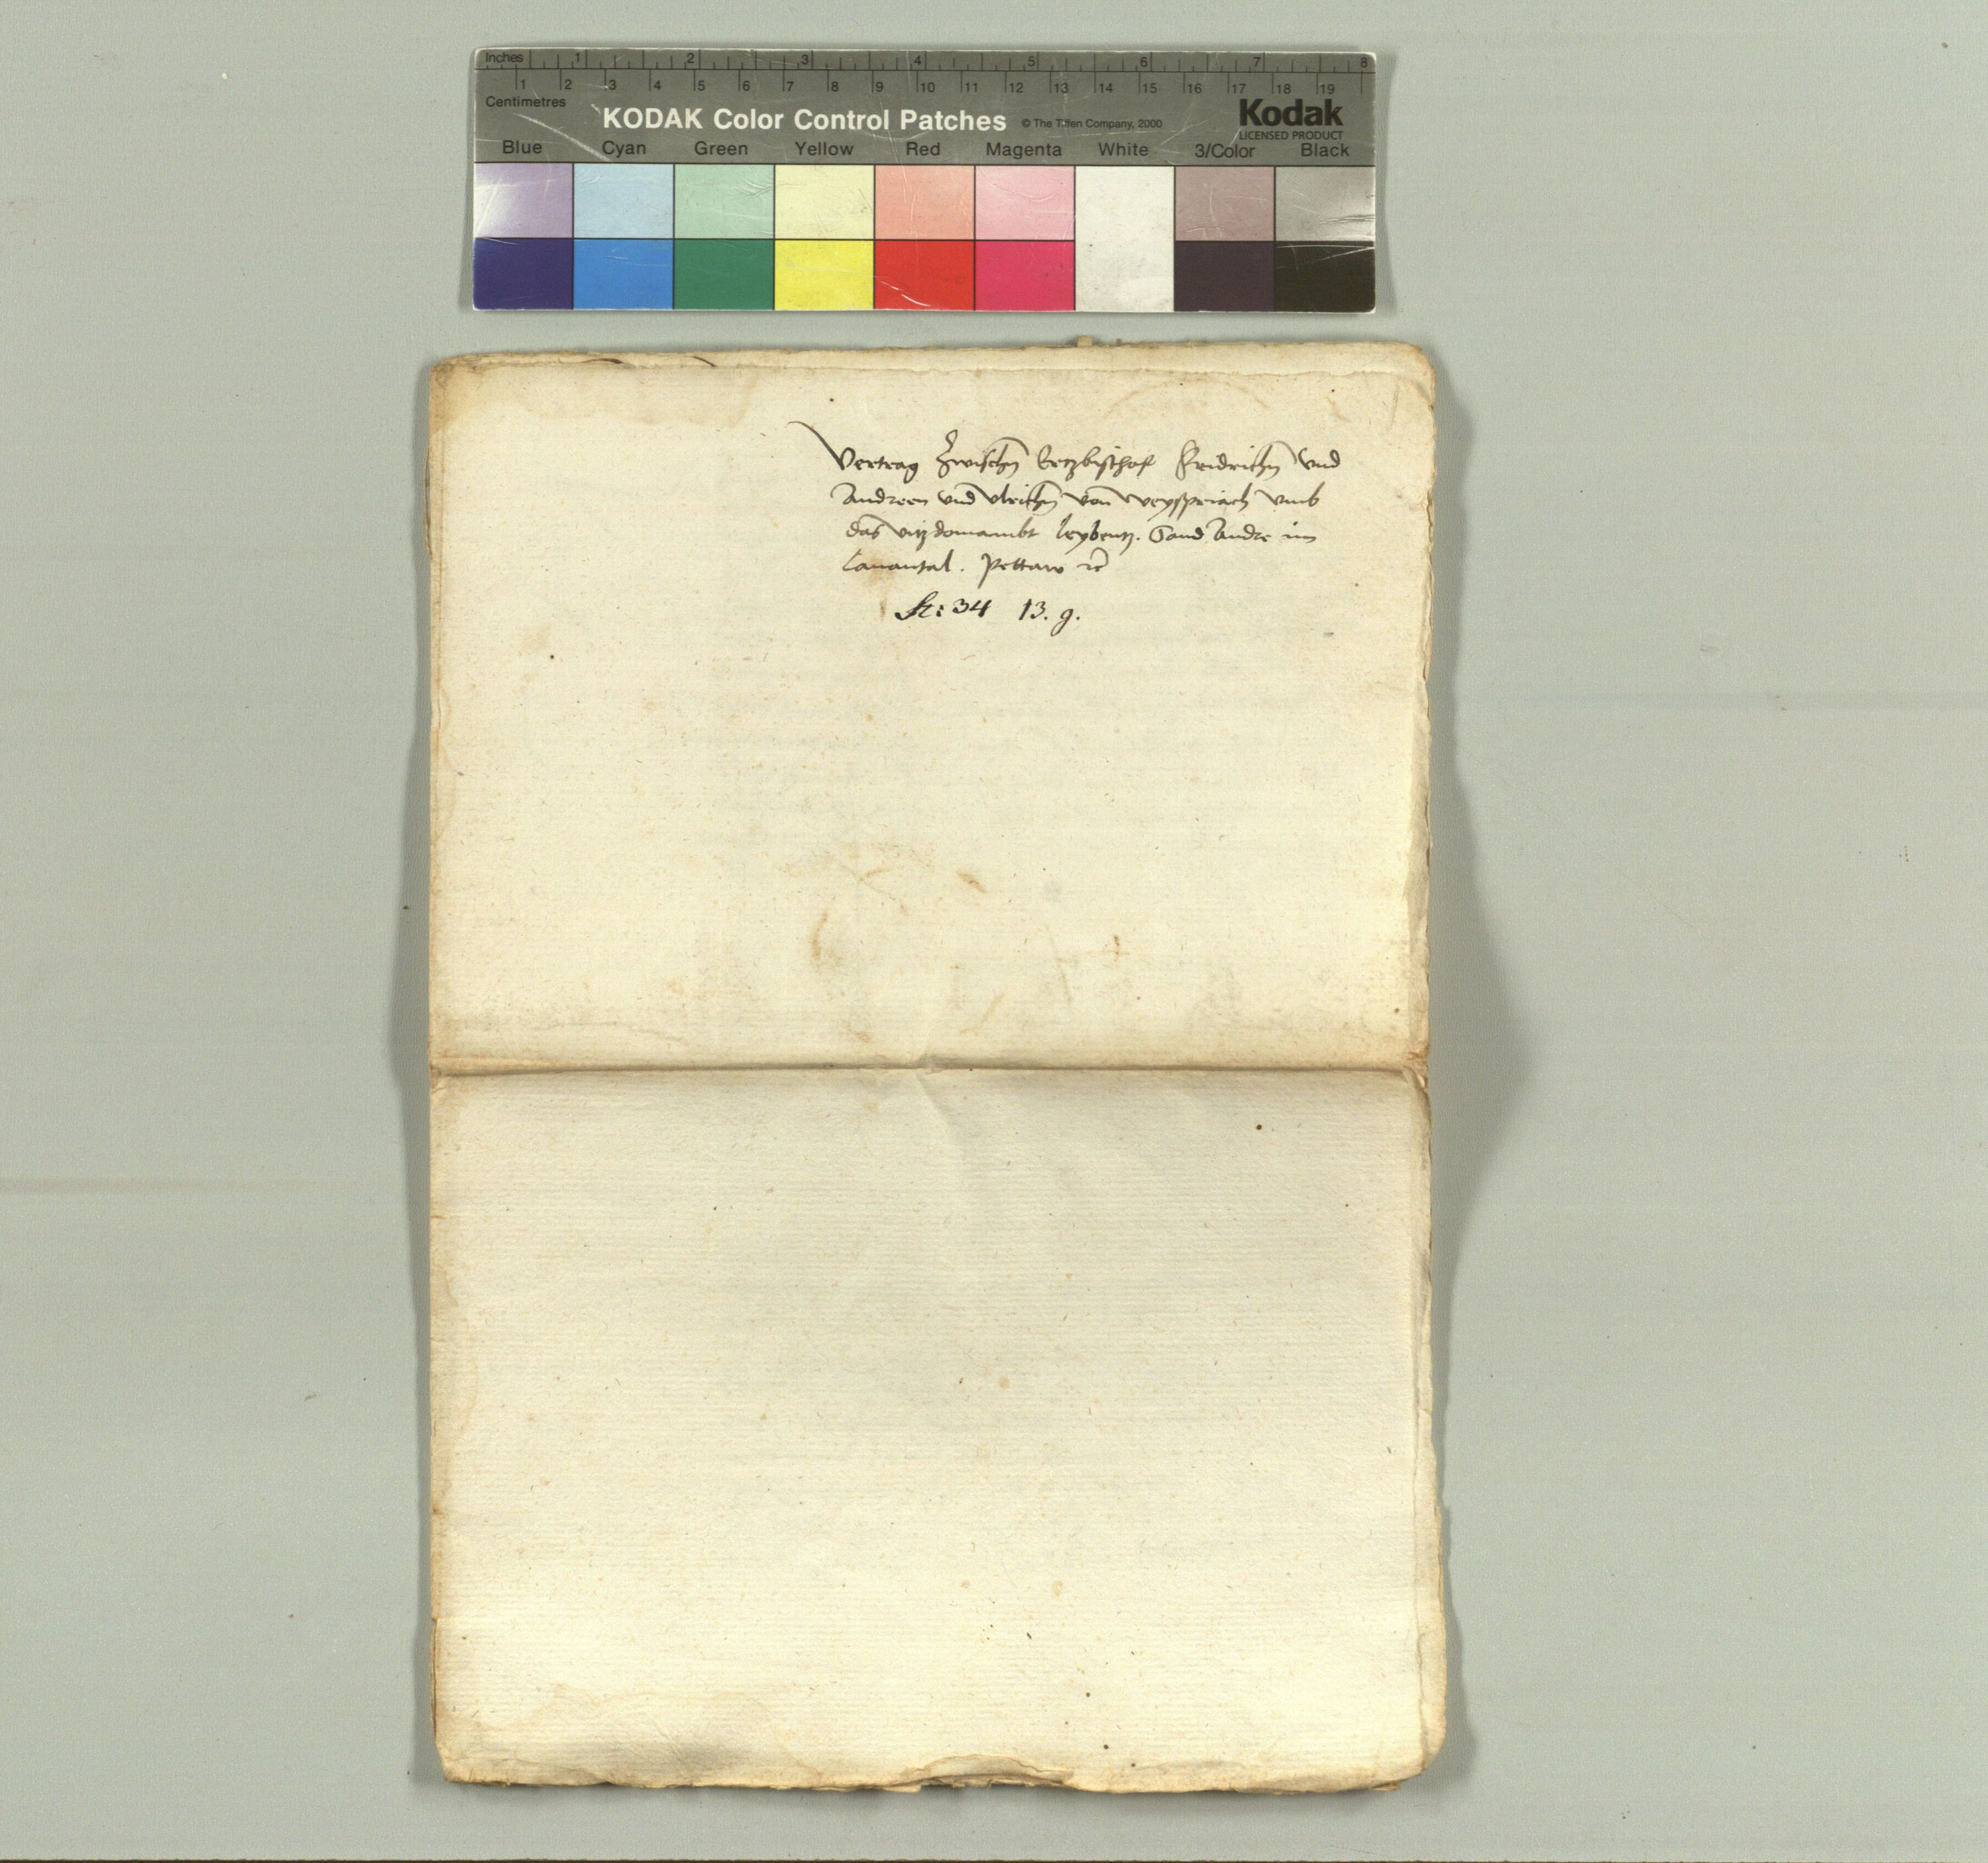 Inches 1 2 3 4 5 6 7 8
1 2 3 4 5 6 7 8 9 10 11 12 13 14 15 16 17 18 19
Centimetres
KODAK Color Control Patches © The Tiffen Company, 2000 Kodak
LICENSED PRODUCT
Blue Cyan Green Yellow Red Magenta White 3/Color Black
Vertrag Zwischn Ertzbischof Fridrichn vnd
Andreen vnd Vlrichn von Weyspriach vmb
das vitzdomambt leybentz. Sand Andre im
Lauantal. Pettaw ꝛc
34 13. g.